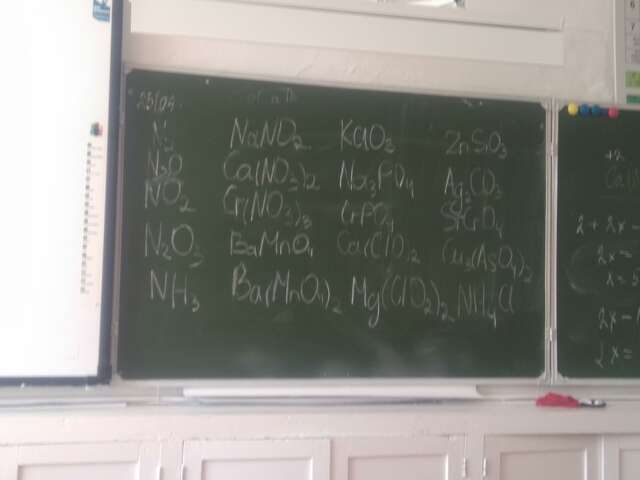 25.04.
N2 NaNO2 KClO3 ZnSiO3
N2O Ca(NO3)2 Na3PO4 Ag2CO3
NO2 Cr(NO3)3 CrPO4 SrCrO4
N2O3 BaMnO4 Ca(ClO)2 Cu3(AsO4)2
NH3 Ba(MnO4)2 Mg(ClO2)2 NH4Cl
+2
2 + 2x -
2x =
2x -
2x =
6
7